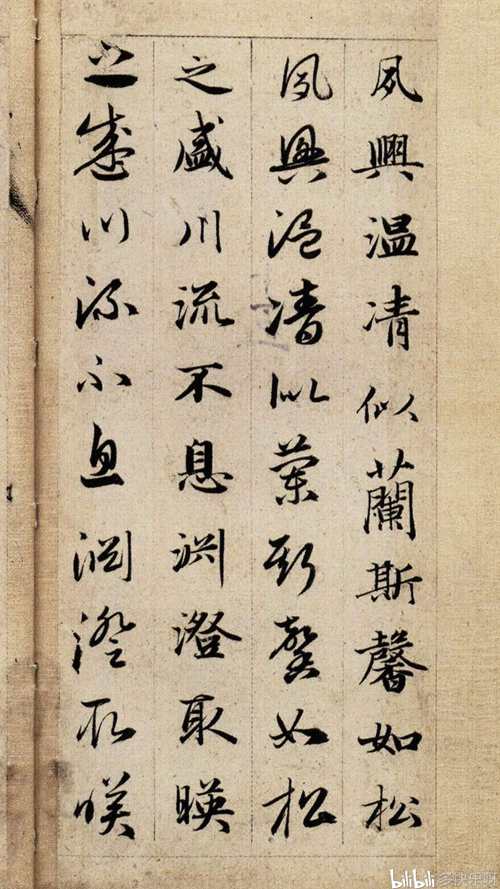 夙興温凊似蘭斯馨如松
夙興温凊似蘭斯馨如松
之盛川流不息淵澄取暎
之盛川流不息淵澄取暎
bilibili